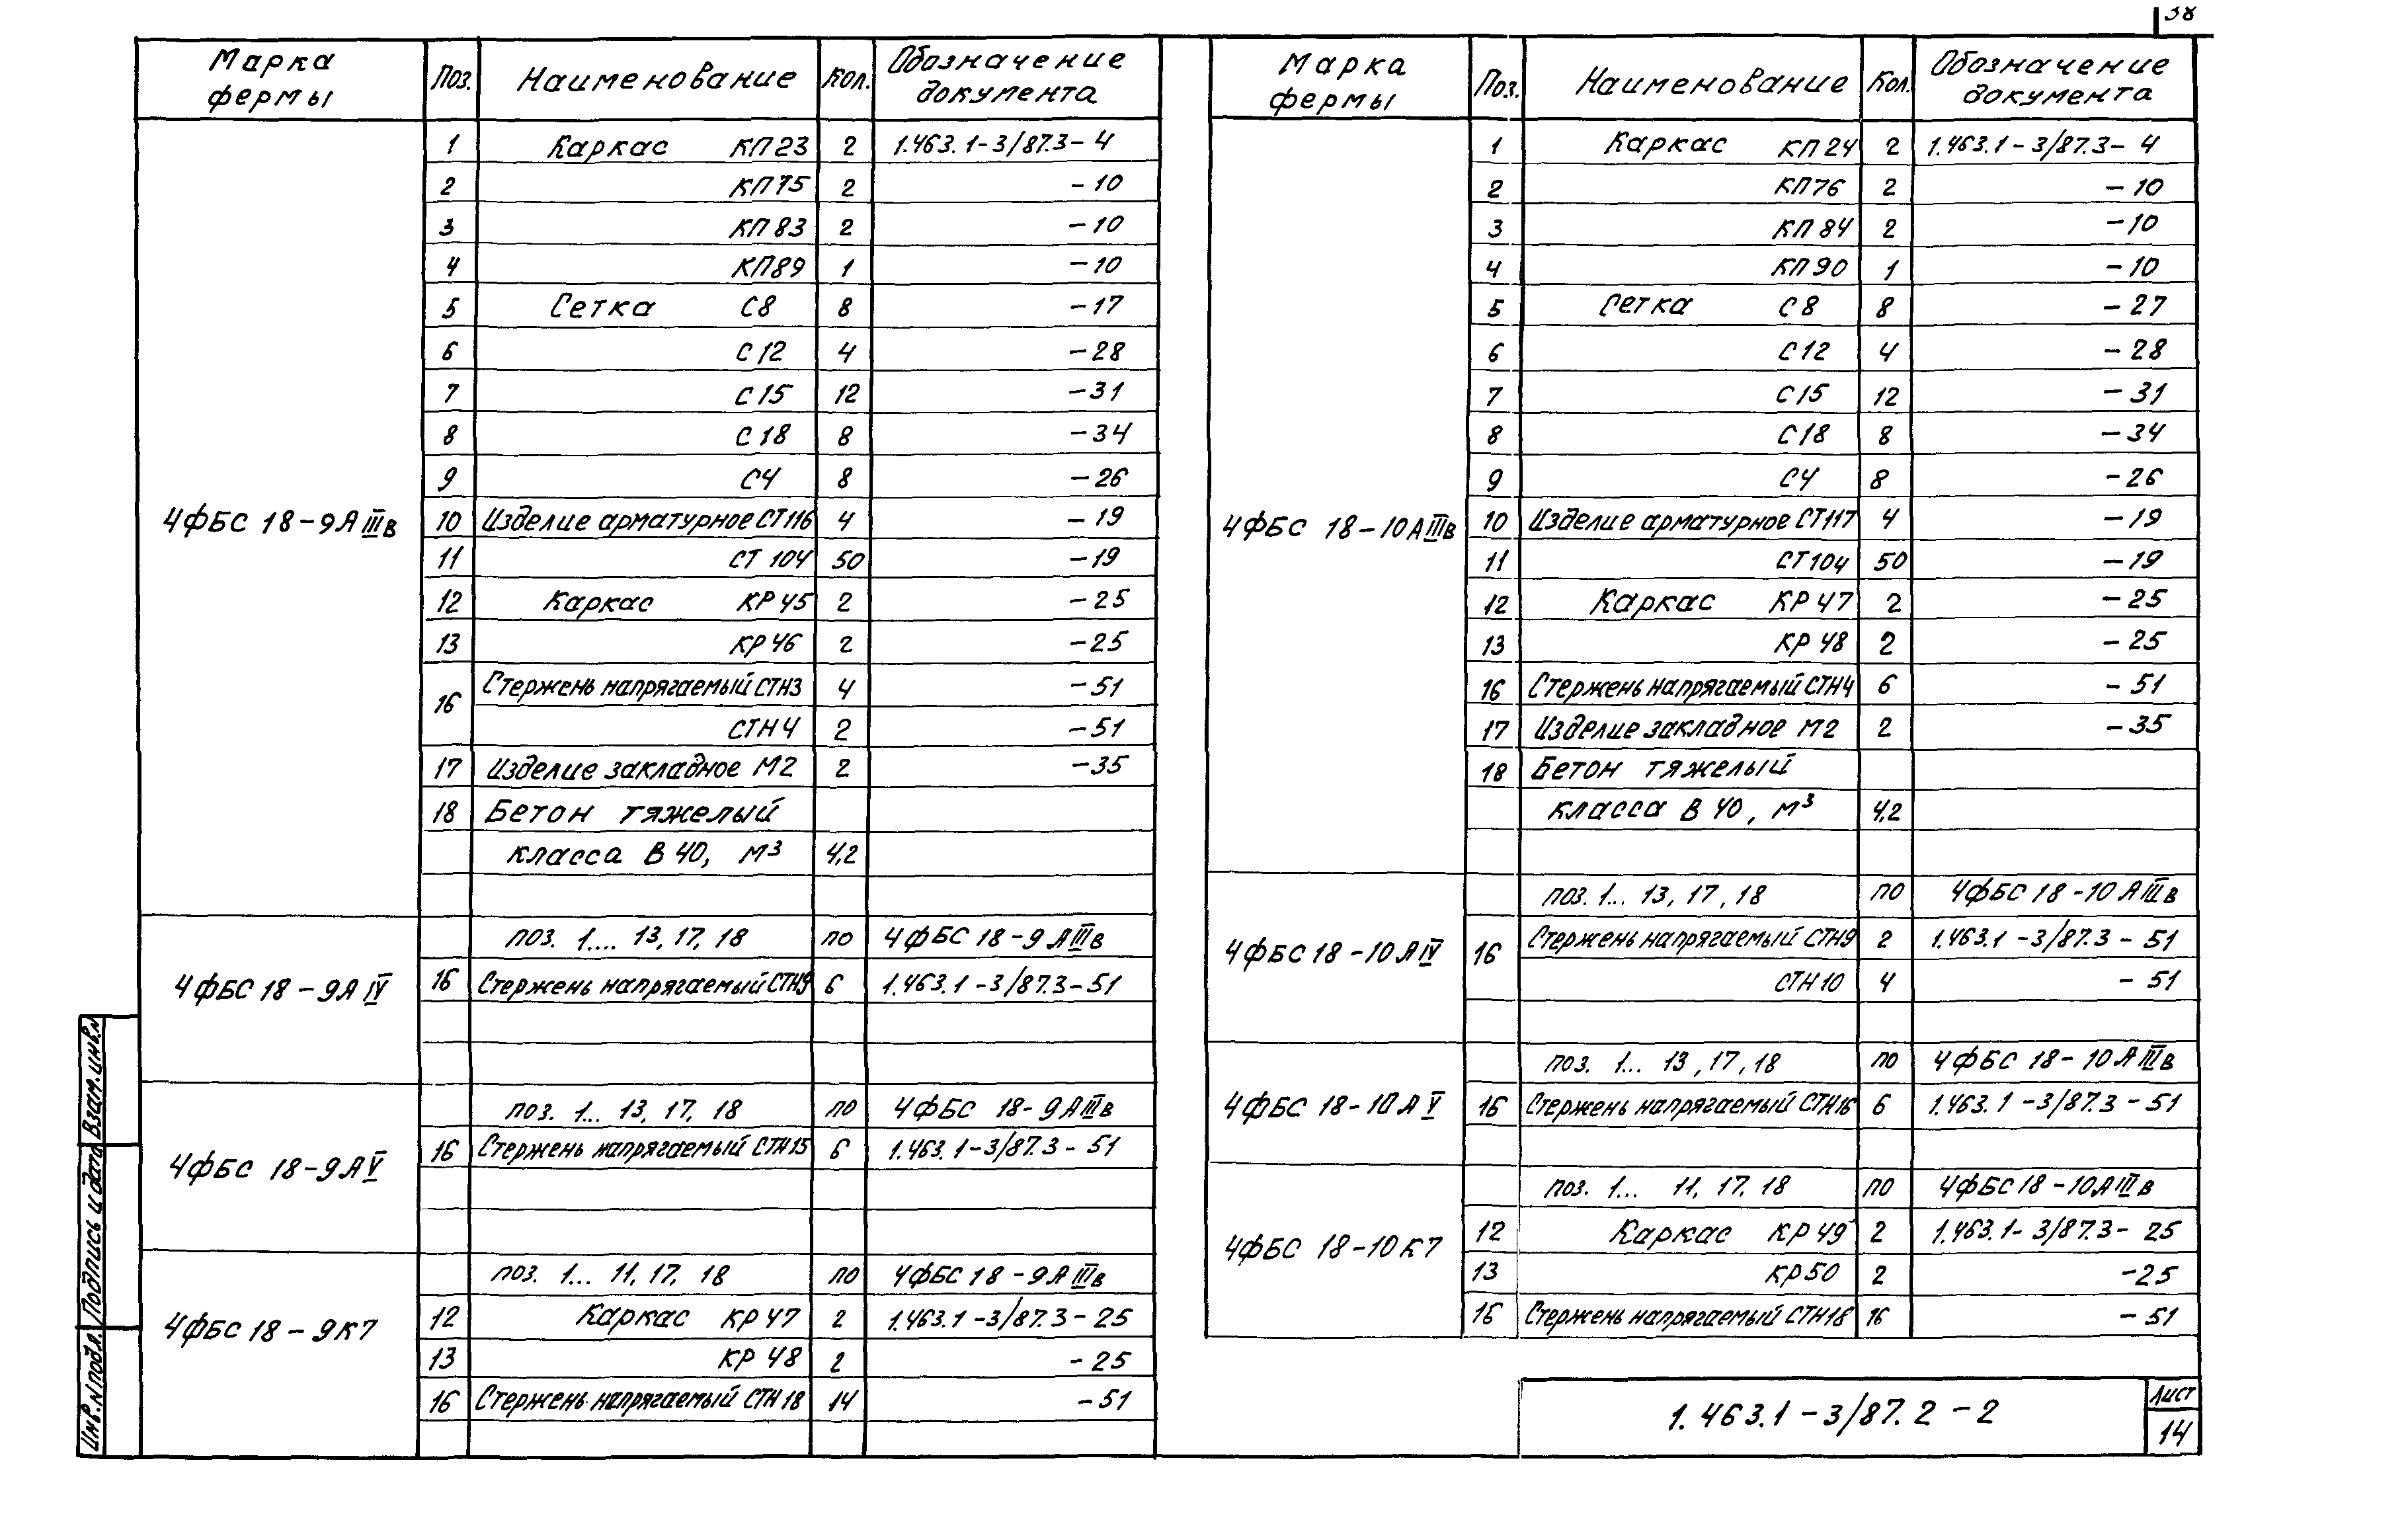 38
Марка фермы Поз. Наименование Кол. Обозначение документа
4ФБС 18-9АIIIв
1 Каркас КП23 2 1.463.1-3/87.3-4
2 КП75 2 -10
3 КП83 2 -10
4 КП89 1 -10
5 Сетка С8 8 -17
6 С12 4 -28
7 С15 12 -31
8 С18 8 -34
9 С4 8 -26
10 Изделие арматурное СТ116 4 -19
11 СТ104 50 -19
12 Каркас КР45 2 -25
13 КР46 2 -25
16 Стержень напрягаемый СТН3 4 -51
СТН4 2 -51
17 Изделие закладное М2 2 -35
18 Бетон тяжелый
класса В40, м³ 4,2
4ФБС 18-9АIV
поз. 1.... 13, 17, 18 по 4ФБС 18-9АIIIв
16 Стержень напрягаемый СТН9 6 1.463.1-3/87.3-51
4ФБС 18-9АV
поз. 1... 13, 17, 18 по 4ФБС 18-9АIIIв
16 Стержень напрягаемый СТН15 6 1.463.1-3/87.3-51
4ФБС 18-9К7
поз. 1... 11, 17, 18 по 4ФБС 18-9АIIIв
12 Каркас КР47 2 1.463.1-3/87.3-25
13 КР48 2 -25
16 Стержень напрягаемый СТН18 14 -51
Марка фермы Поз. Наименование Кол. Обозначение документа
4ФБС 18-10АIIIв
1 Каркас КП24 2 1.463.1-3/87.3-4
2 КП76 2 -10
3 КП84 2 -10
4 КП90 1 -10
5 Сетка С8 8 -27
6 С12 4 -28
7 С15 12 -31
8 С18 8 -34
9 С4 8 -26
10 Изделие арматурное СТ117 4 -19
11 СТ104 50 -19
12 Каркас КР47 2 -25
13 КР48 2 -25
16 Стержень напрягаемый СТН4 6 -51
17 Изделие закладное М2 2 -35
18 Бетон тяжелый
класса В40, м³ 4,2
4ФБС 18-10АIV
поз. 1... 13, 17, 18 по 4ФБС 18-10АIIIв
16 Стержень напрягаемый СТН9 2 1.463.1-3/87.3-51
СТН10 4 -51
4ФБС 18-10АV
поз. 1... 13, 17, 18 по 4ФБС 18-10АIIIв
16 Стержень напрягаемый СТН16 6 1.463.1-3/87.3-51
4ФБС 18-10К7
поз. 1... 11, 17, 18 по 4ФБС 18-10АIIIв
12 Каркас КР49 2 1.463.1-3/87.3-25
13 КР50 2 -25
16 Стержень напрягаемый СТН18 16 -51
Инв.N подл. Подпись и дата Взам.инв.N
1.463.1-3/87.2-2
Лист
14